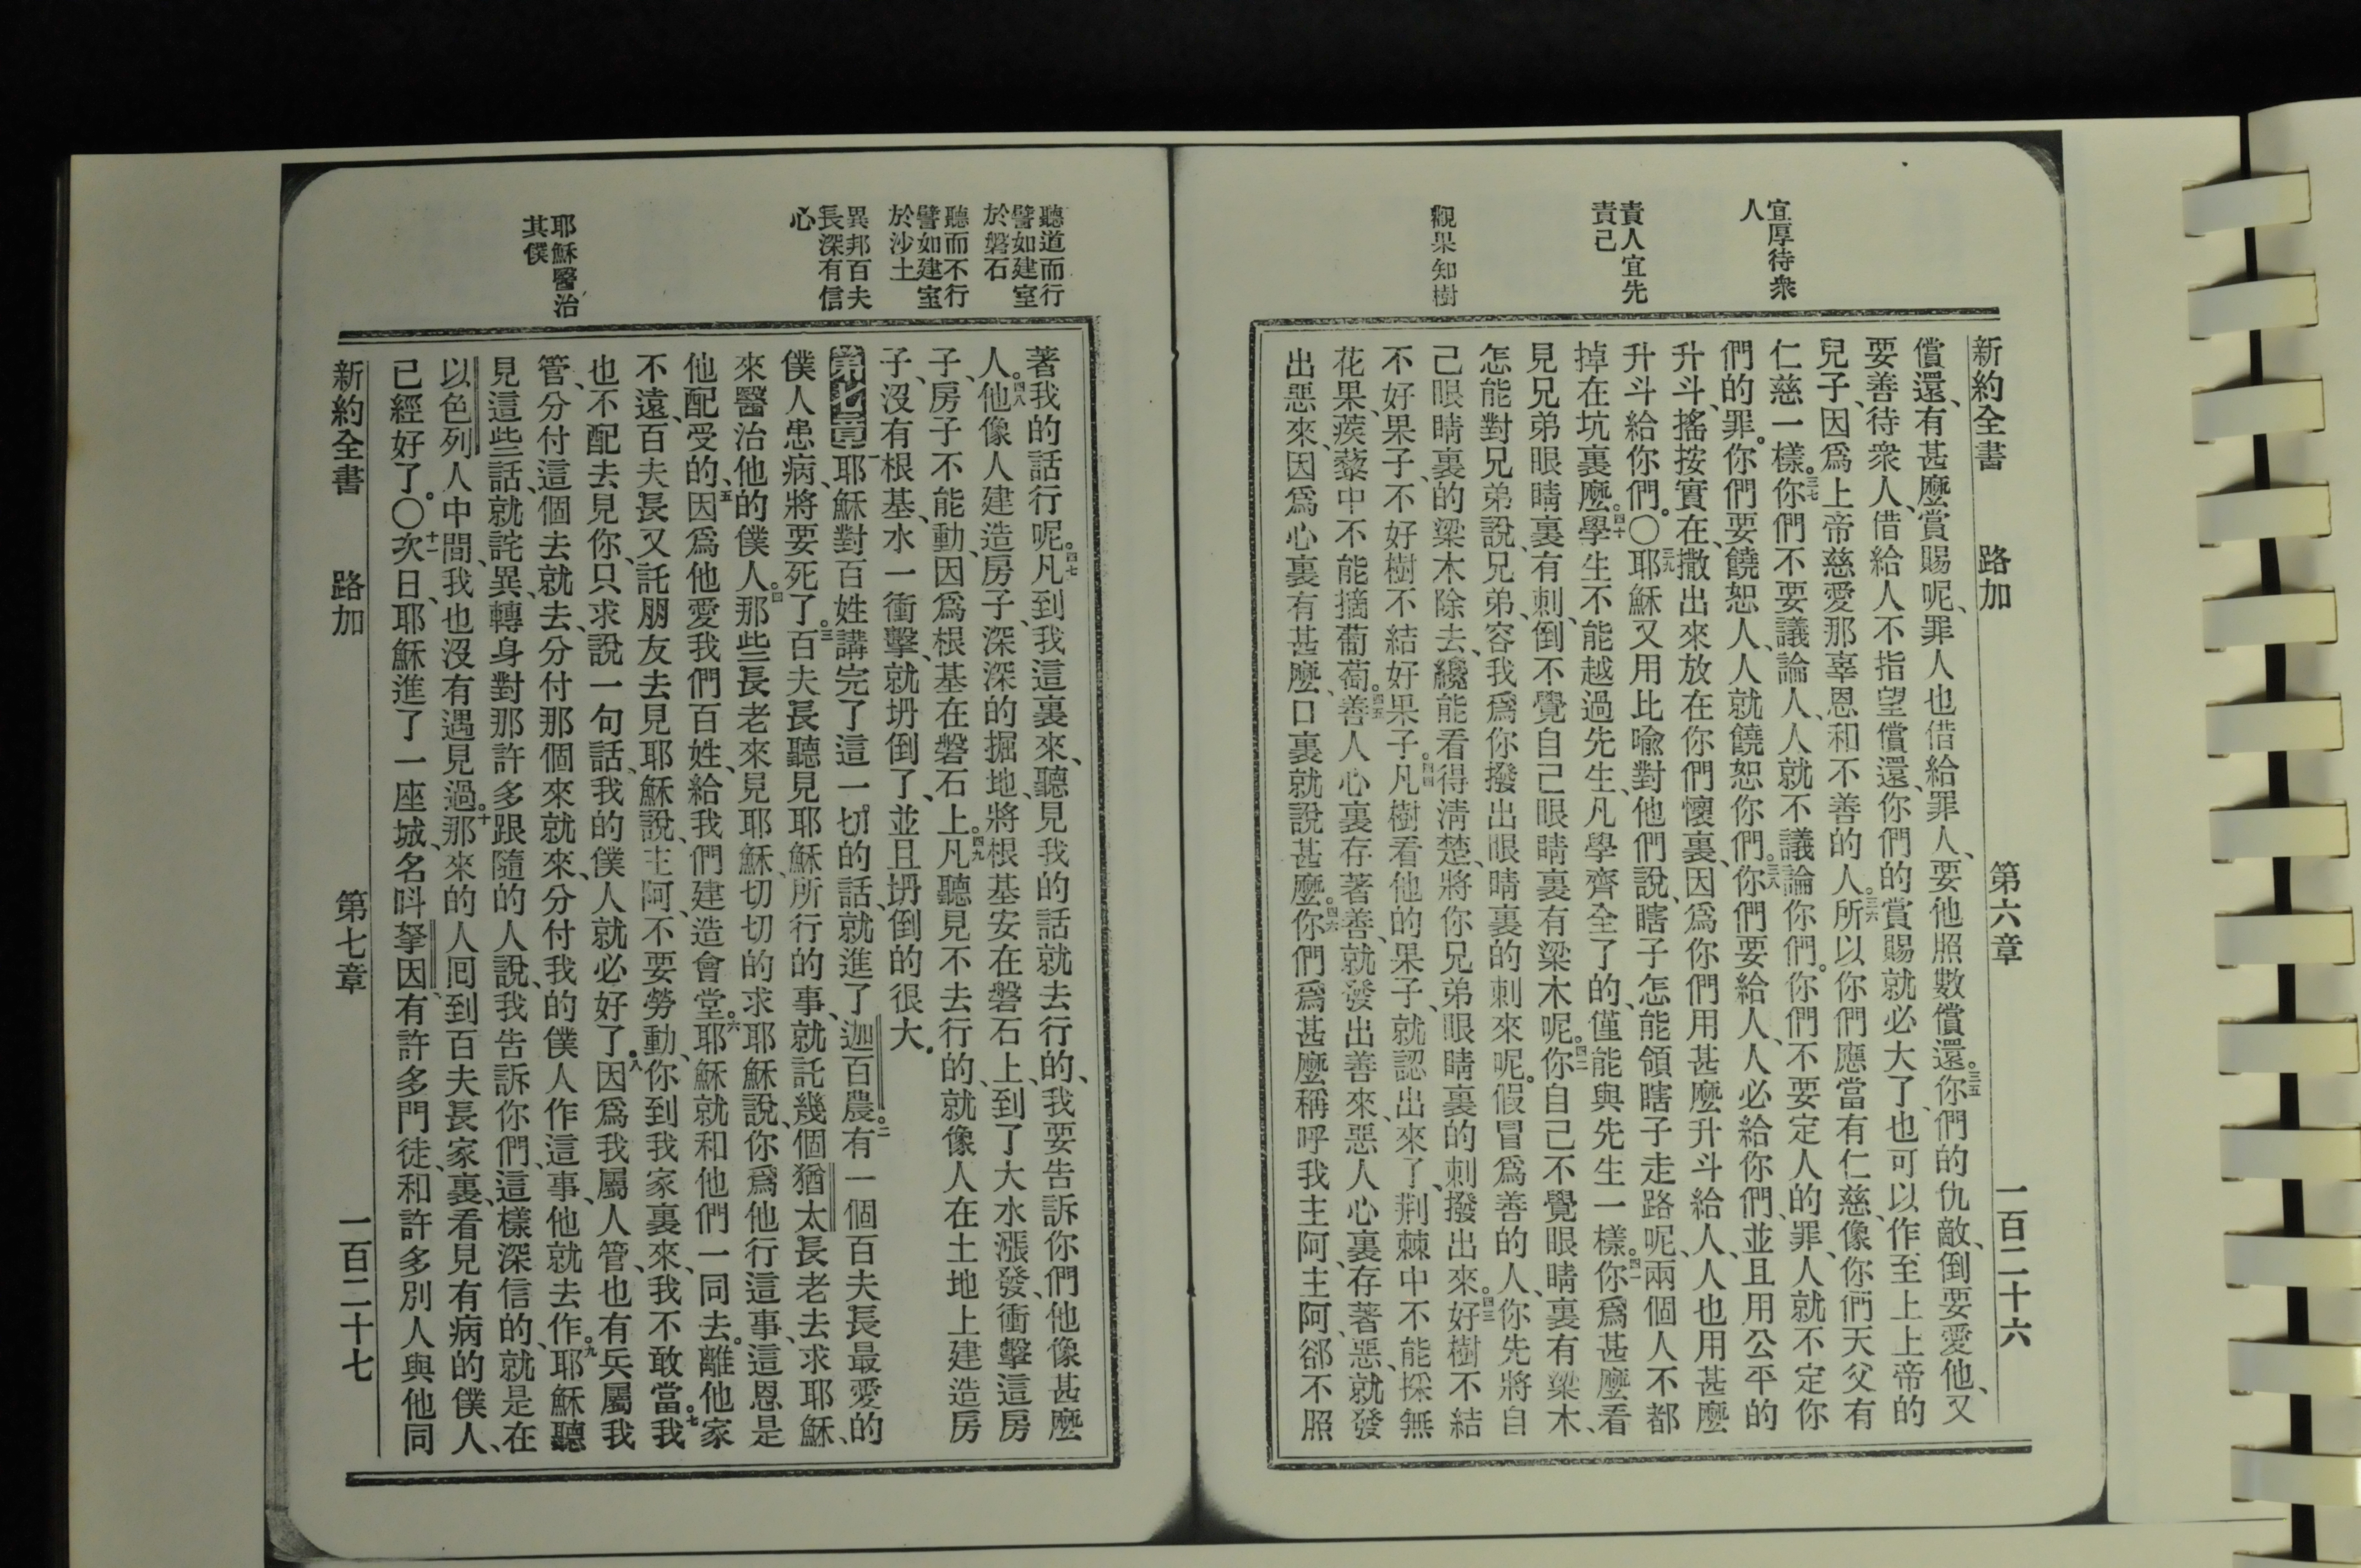 宜厚待衆
人
責人宜先
責己
觀果知樹
新約全書 路加 第六章 一百二十六
償還、有甚麽賞賜呢、罪人也借給罪人、要他照數償還。三五你們的仇敵、倒要愛他、又
要善待衆人、借給人不指望償還、你們的賞賜就必大了、也可以作至上上帝的
兒子、因爲上帝慈愛那辜恩和不善的人。三六所以你們應當有仁慈、像你們天父有
仁慈一樣。三七你們不要議論人、人就不議論你們。你們不要定人的罪、人就不定你
們的罪。你們要饒恕人、人就饒恕你們。三八你們要給人、人必給你們、並且用公平的
升斗、搖按實在、撒出來放在你們懷裏、因爲你們用甚麽升斗給人、人也用甚麽
升斗給你們。〇三九耶穌又用比喻對他們說、瞎子怎能領瞎子走路呢、兩個人不都
掉在坑裏麽。四十學生不能越過先生、凡學齊全了的、僅能與先生一樣。四一你爲甚麽看
見兄弟眼睛裏有刺、倒不覺自己眼睛裏有梁木呢。四二你自己不覺眼睛裏有梁木、
怎能對兄弟說、兄弟、容我爲你撥出眼睛裏的刺來呢。假冒爲善的人、你先將自
己眼睛裏的梁木除去、纔能看得清楚、將你兄弟眼睛裏的刺撥出來。四三好樹不結
不好果子、不好樹不結好果子。四四凡樹看他的果子、就認出來了、荆棘中不能採無
花果、蒺藜中不能摘葡萄。四五善人心裏存著善、就發出善來、惡人心裏存著惡、就發
出惡來、因爲心裏有甚麽、口裏就說甚麽。四六你們爲甚麽稱呼我主阿、主阿、郤不照
聽道而行
譬如建室
於磐石
聽而不行
譬如建室
於沙土
異邦百夫
長深有信
心
耶穌醫治
其僕
著我的話行呢。四七凡到我這裏來、聽見我的話就去行的、我要告訴你們他像甚麽
人。四八他像人建造房子、深深的掘地、將根基安在磐石上、到了大水漲發、衝擊這房
子、房子不能動、因爲根基在磐石上。四九凡聽見不去行的、就像人在土地上建造房
子、沒有根基、水一衝擊、就坍倒了、並且坍倒的很大。
第七章 一耶穌對百姓講完了這一切的話、就進了迦百農。二有一個百夫長最愛的
僕人患病、將要死了。三百夫長聽見耶穌所行的事、就託幾個猶太長老去求耶穌、
來醫治他的僕人。四那些長老來見耶穌、切切的求耶穌說、你爲他行這事、這恩是
他配受的、五因爲他愛我們百姓、給我們建造會堂。六耶穌就和他們一同去。離他家
不遠、百夫長又託朋友去見耶穌說、主阿、不要勞動、你到我家裏來、我不敢當。七我
也不配去見你、只求說一句話、我的僕人就必好了。八因爲我屬人管、也有兵屬我
管、分付這個去就去、分付那個來就來、分付我的僕人作這事、他就去作。九耶穌聽
見這些話、就詫異、轉身對那許多跟隨的人說、我告訴你們、這樣深信的、就是在
以色列人中間、我也沒有遇見過。十那來的人囘到百夫長家裏、看見有病的僕人、
已經好了。〇十一次日、耶穌進了一座城、名呌拏因、有許多門徒、和許多別人與他同
新約全書 路加 第七章 一百二十七